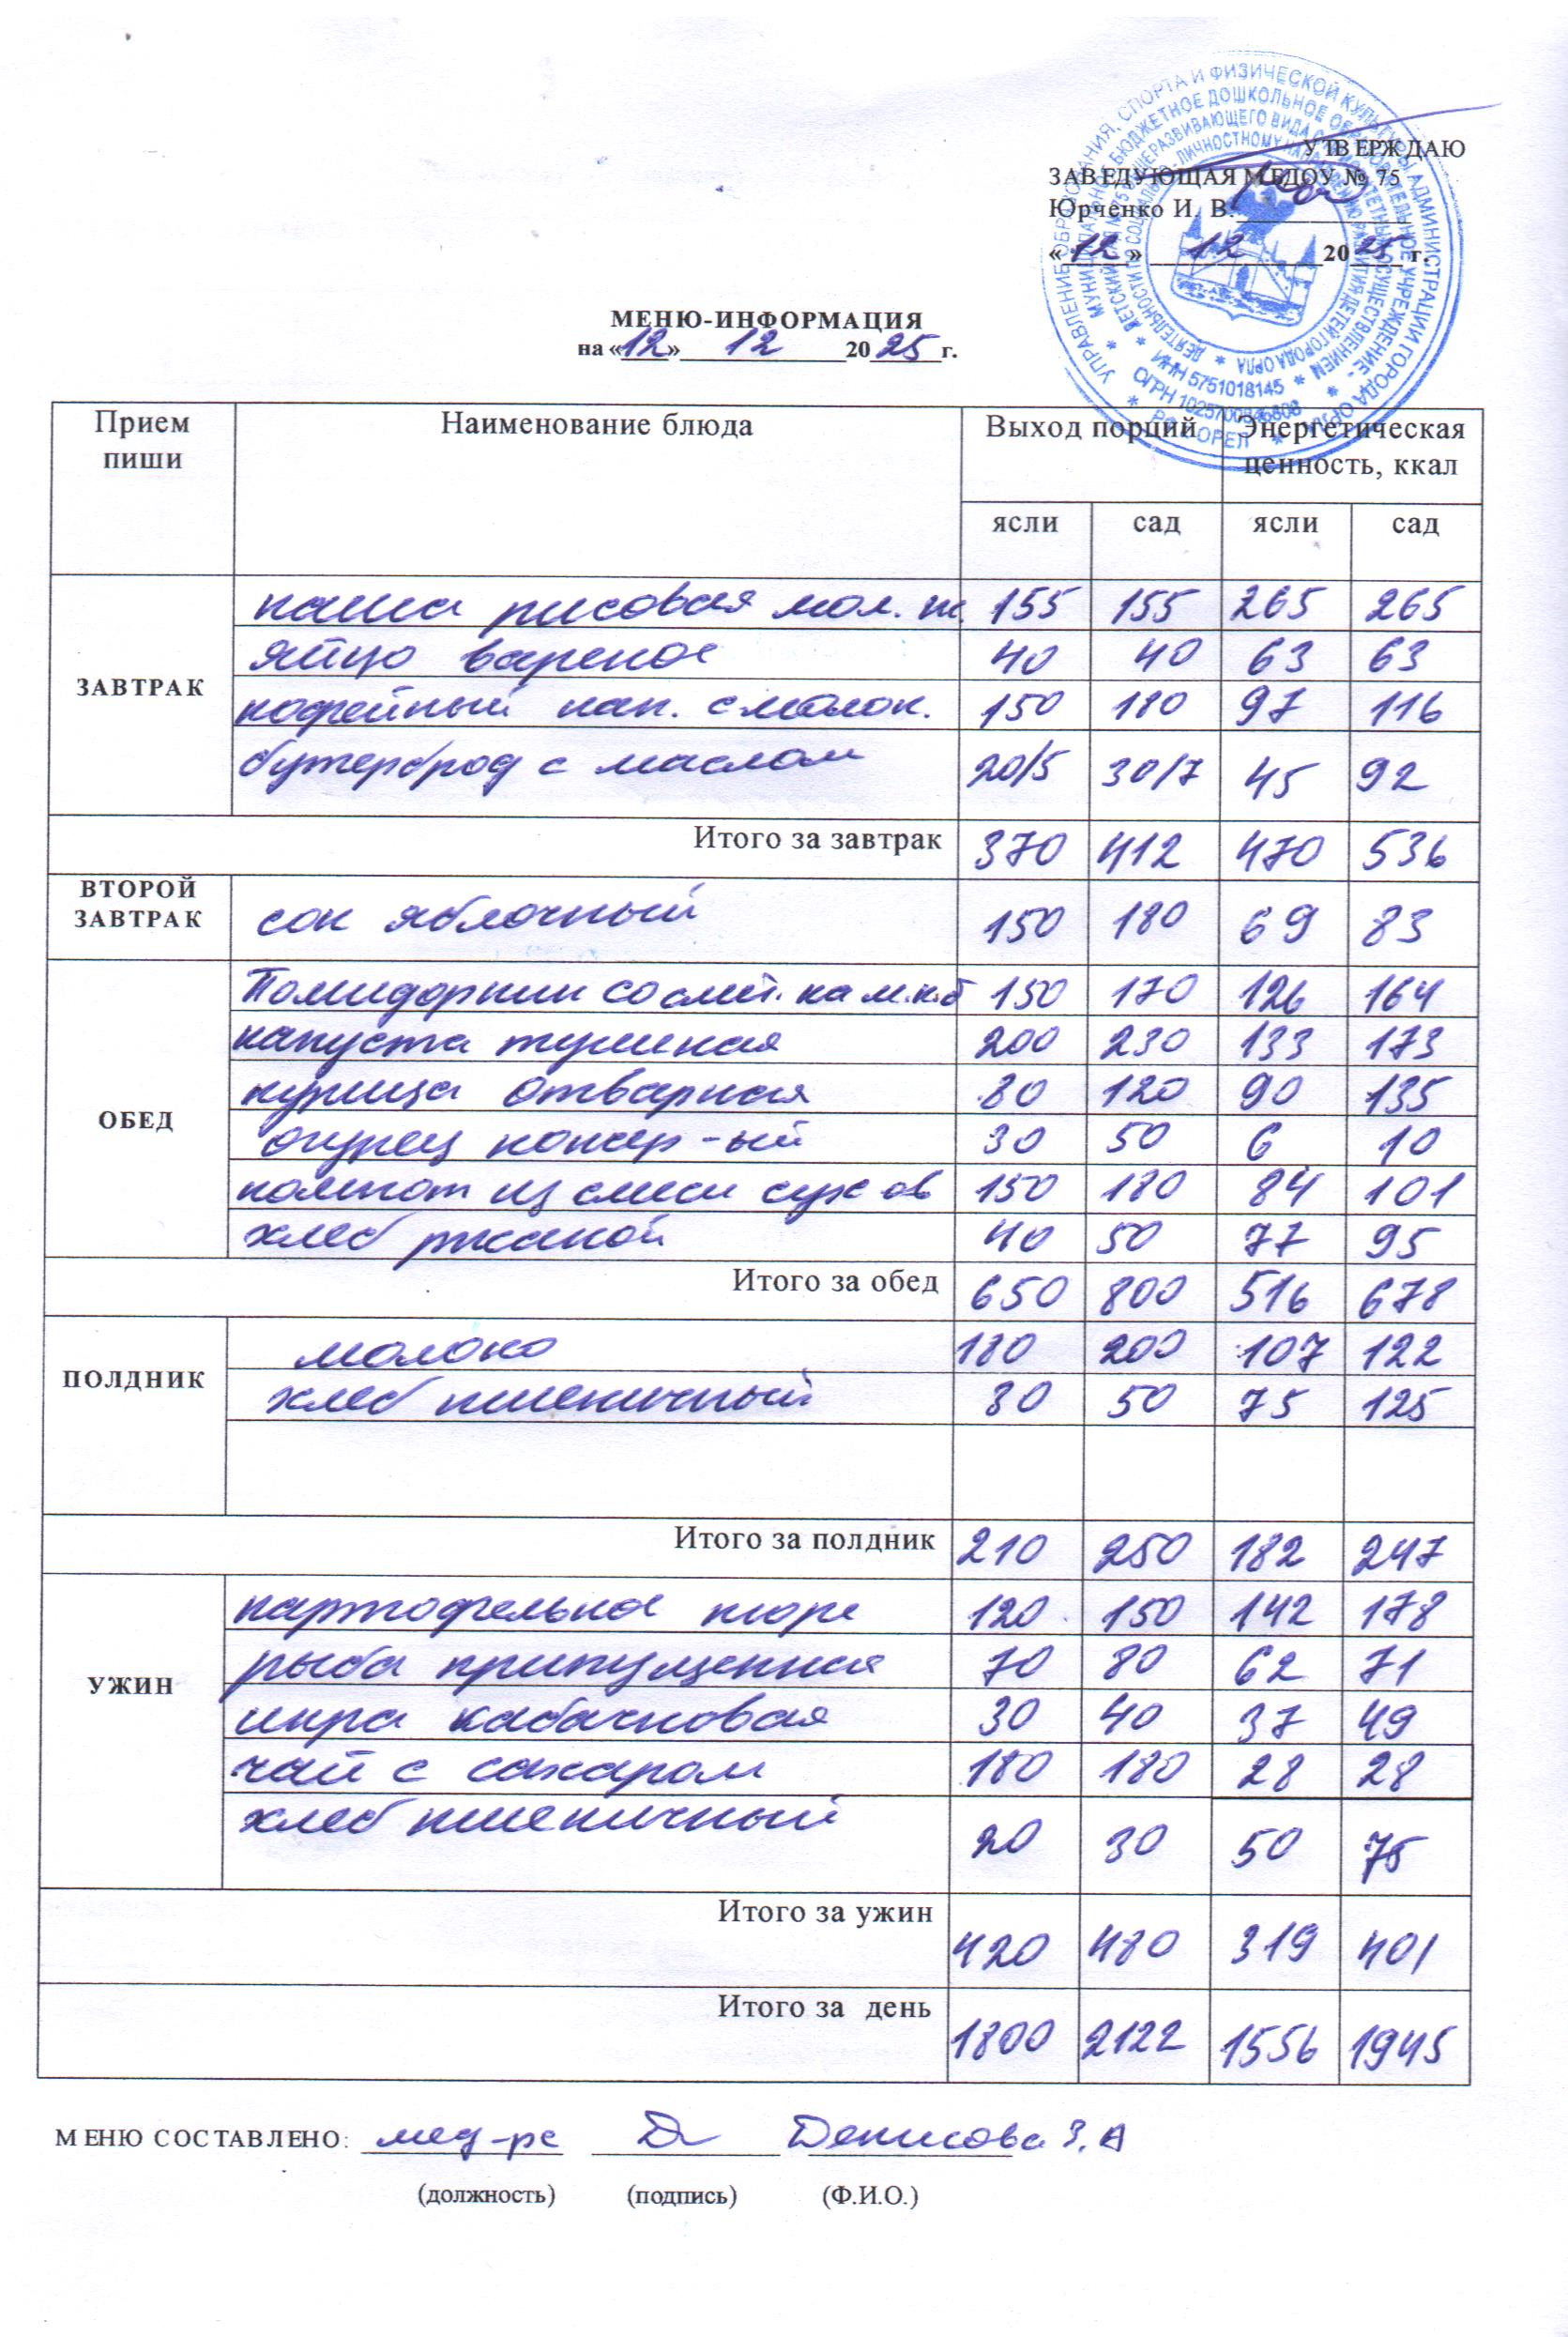 УТВЕРЖДАЮ
ЗАВЕДУЮЩАЯ МБДОУ № 75
Юрченко И. В.
«12» 12 2025 г.
МЕНЮ-ИНФОРМАЦИЯ
на «12» 12 2025 г.
Прием пиши Наименование блюда Выход порций Энергетическая ценность, ккал
ясли сад ясли сад
ЗАВТРАК
каша рисовая мол. ж. 155 155 265 265
яйцо вареное 40 40 63 63
кофейный нап. с молок. 150 180 97 116
бутерброд с маслом 20/5 30/7 45 92
Итого за завтрак 370 412 470 536
ВТОРОЙ ЗАВТРАК сок яблочный 150 180 69 83
ОБЕД
со смет. на м.к.б 150 170 126 164
капуста тушеная 200 230 133 173
курица отварная 80 120 90 135
огурец консер-ый 30 50 6 10
компот из смеси сух-ов 150 180 84 101
хлеб ржаной 40 50 77 95
Итого за обед 650 800 516 678
ПОЛДНИК
молоко 180 200 107 122
хлеб пшеничный 30 50 75 125
Итого за полдник 210 250 182 247
УЖИН
картофельное пюре 120 150 142 178
рыба припущенная 70 80 62 71
икра кабачковая 30 40 37 49
чай с сахаром 180 180 28 28
хлеб пшеничный 20 30 50 75
Итого за ужин 420 480 319 401
Итого за день 1800 2122 1556 1945
МЕНЮ СОСТАВЛЕНО: мед-ре Денисова З.А
(должность) (подпись) (Ф.И.О.)